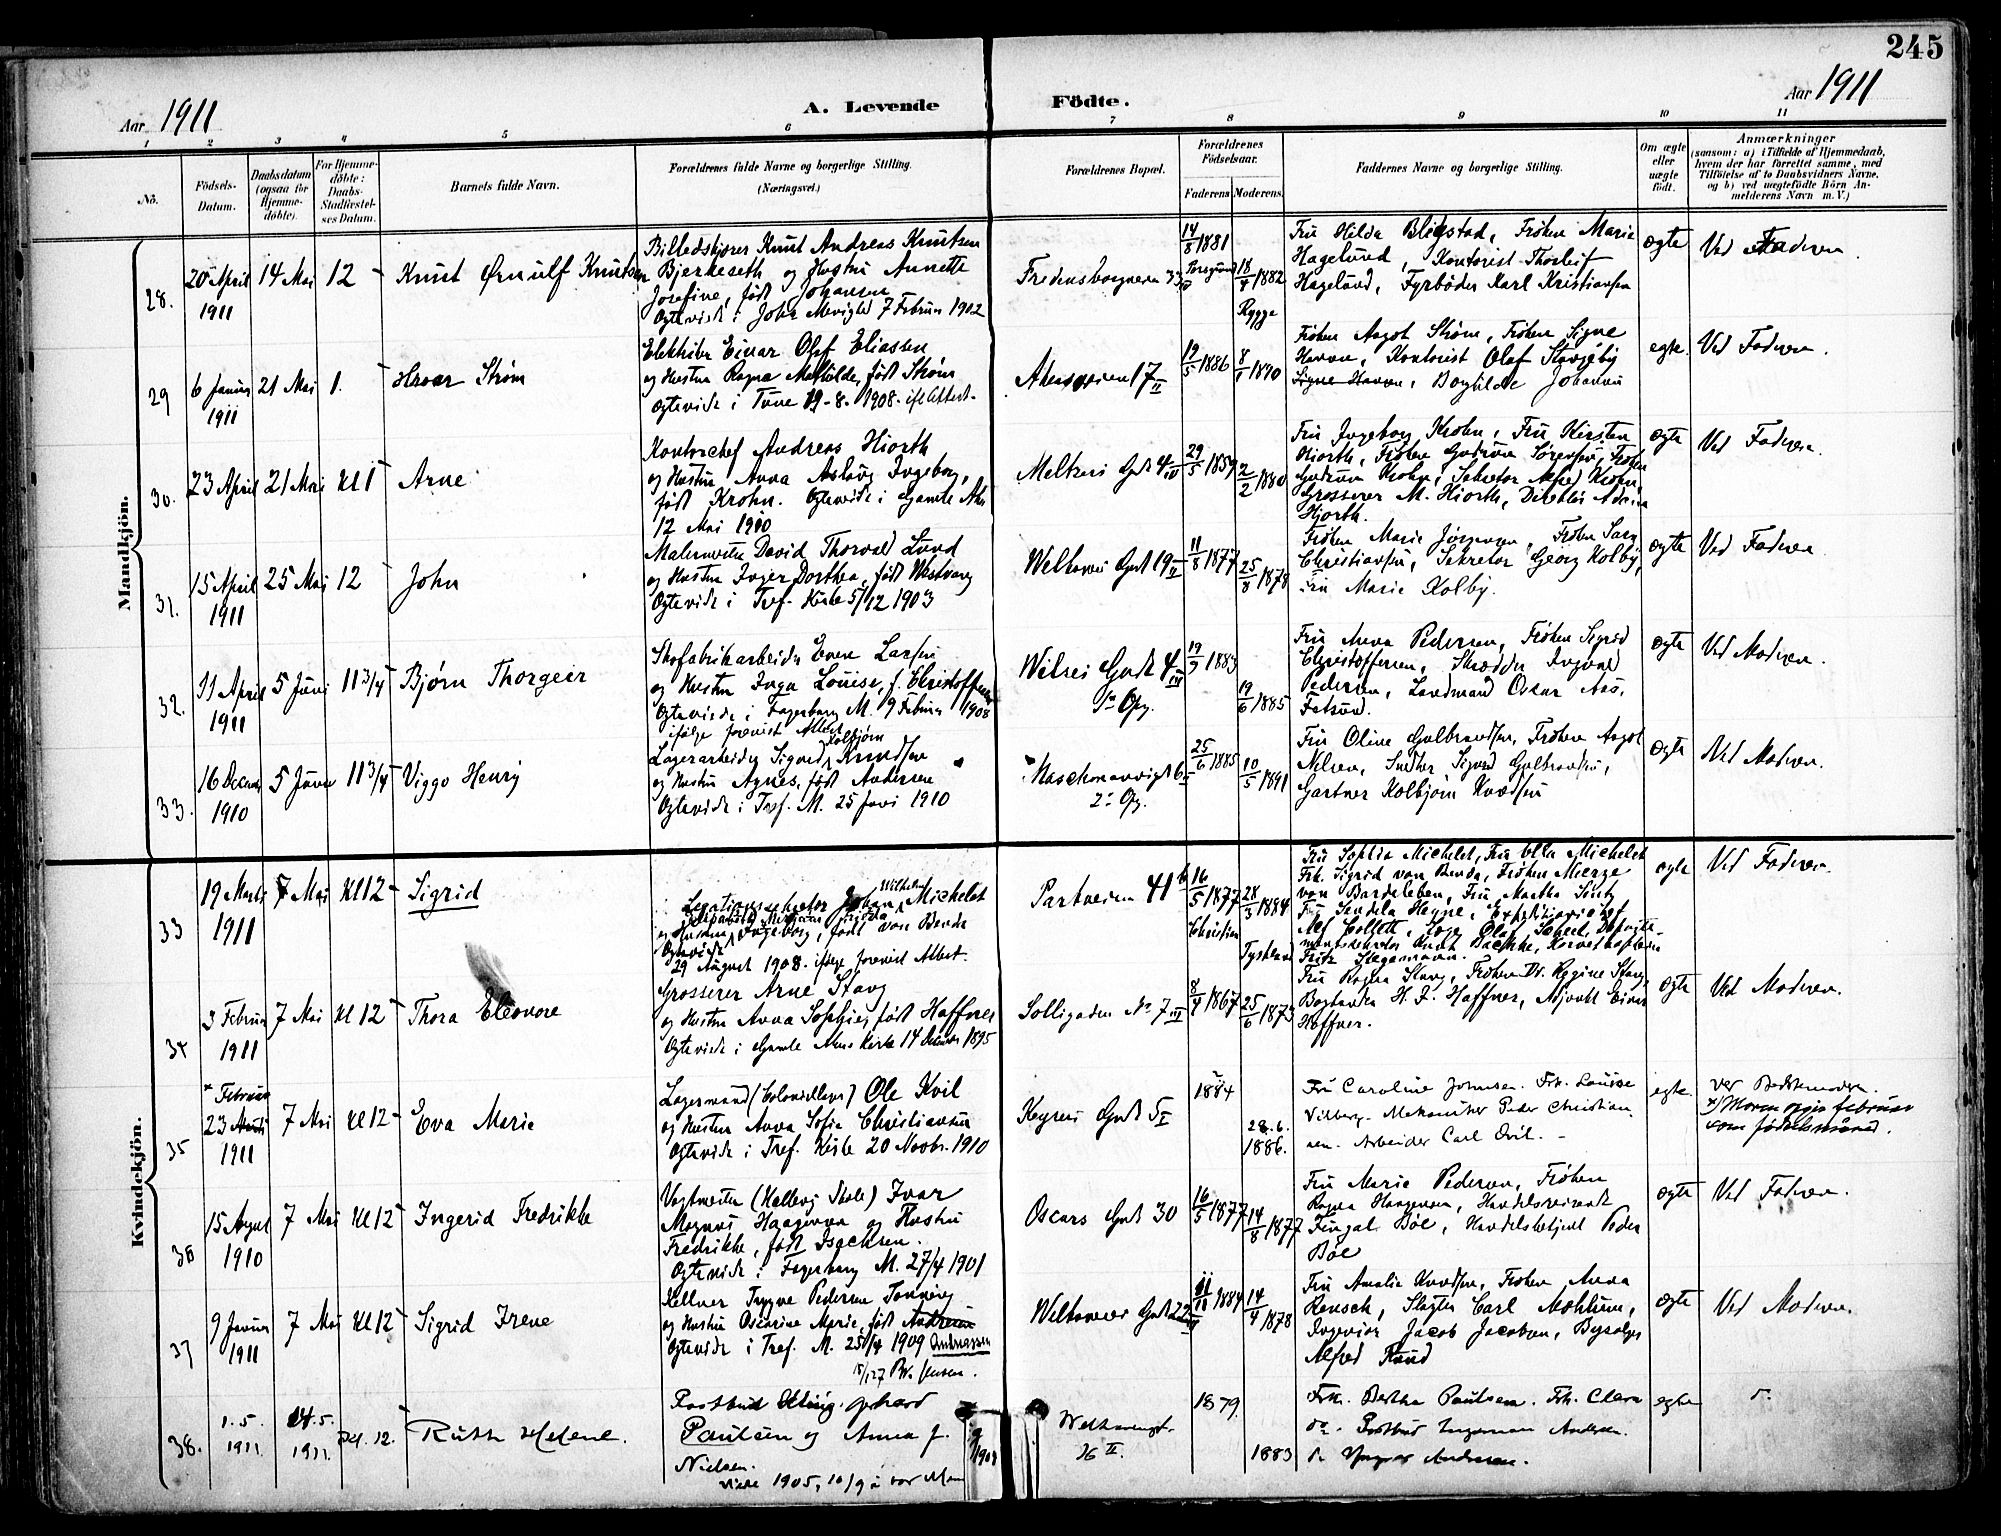 245
Aar 1911
A. Levende Födte.
Aar 1911
1 2 3 4 5 6 7 8 9 10 11
No.
Födsels-Datum.
Daabsdatum (ogsaa for Hjemme-döbte).
For Hjemme-döbte: Daabs-Stadfæstel-ses Datum.
Barnets fulde Navn.
Forældrenes fulde Navne og borgerlige Stilling. (Næringsvei.)
Forældrenes Bopæl.
Forældrenes Födselsaar.
Faderens. Moderens.
Faddernes Navne og borgerlige Stilling.
Om ægte eller uægte födt.
Anmærkninger
(saasom: a) i Tilfælde af Hjemmedaab, hvem der har forrettet samme, med Tilföielse af to Daabsvidners Navne, og b) ved uægtefödte Börn An-melderens Navn m. V.)
Mandkjön.
28. 20 April 1911 14 Mai 12 Knut Ørnulf Knutsen
Billedskjærer Knut Andreas Knutsen
Bjerkeseth og Hustru Annette
Josefine, født Johansen
7 Februar 1902
Fredensborgveien 33
14/8 1881 18/4 1882 Rygge
Fru Hilda Blegstad, Frøken Marie
Hagelund, Kontorist Thorleif
Hagelund, Fyrbøder Karl Kristiansen
ægte Ved Faderen.
29 6 Januar 1911 21 Mai 1. Hroar Strøm
Elektriker Einar Olaf Eliassen
og Hustru Ragna Mathilde, født Strøm
Ægteviede i Tune 19-8-1908. ifl. Attest.
Akersveien 17 II
19/5 1886 8/1 1890
Frøken Aagot Strøm, Frøken Signe
Havnen, Kontorist Olaf
Signe Havnen, Johansen
egte. Ved Faderen.
30. 23 April 21 Mai Kl 1 Arne
Kontorchef Andreas Hiorth
og Hustru Anna Aslaug Ingeborg,
født Krohn. Ægteviede i Gamle Aker
12 Mai 1910
Meltzers Gade 4 III
29/5 1859 2/2 1880
Fru Ingeborg Krohn, Fru Kirsten
Hiorth, Frøken Gudrun Sørensen, Frøken
Gudrun Krohn, Sekretær Alfred Krohn,
Grosserer M. Hiorth, Direktør
Hjorth.
ægte Ved Faderen.
31. 15 April 1911 25 Mai 12 John
Malermester David Thorvald Lund
og Hustru Inger Dorthea, født
Ægteviede i Tref. Kirke 5/12 1903
Welhavens Gade 19 II
11/8 1877 25/8 1878
Frøken Marie Jørgensen, Frøken
Christiansen, Sekretær Georg Kolby,
Fru Marie Kolby.
ægte Ved Faderen.
32. 11 April 1911 5 Juni 11 3/4 Bjørn Thorgeir
Skofabrikarbeider Even Larsen
og Hustru Inga Louise, f. Christoffersen
Ægteviede i Fagerborg M. 9 Februar 1908
ifølge forevist Attest
Wilses Gade 4 III
1ste Opg.
19/9 1883 19/6 1885
Fru Anna Pedersen, Frøken Sigrid
Christoffersen, Skrædder Ingvald
Pedersen, Landmand Oscar Aas,
Fetsund.
ægte Ved Moderen.
33. 16 Decem 1910 5 Juni 11 3/4 Viggo Henry
Lagerarbeider Sigurd Kolbjørn Knudsen
og Hustru Agnes, født Andersen
Ægteviede i Tref. M. 25 Juni 1910
2. Opg.
25/6 1885 10/5 1891
Fru Oline Gulbrandsen, Frøken Aagot
Nilsen, Sigurd Gulbrandsen,
Gartner Kolbjørn Knudsen
ægte Ved Moderen.
Kvindekjön.
33 19 Marts 1911 7 Mai Kl 12 Sigrid
Legationssekretær Johan Wilhelm Michelet
og Hustru Ingeborg, født von Bonde
Ægteviede
29 August 1908. ifølge forevist Attest.
Parkveien 41 b
16/5 1877 Christian 28/3 1884 Tyskland
Fru Sophie Michelet, Fru Michelet
Frk. Sigrid von Bonde, Frøken
von Bardeleben, Fru Martha
Alf Collett,
ægte Ved Faderen.
34 3 Februar 1911 7 Mai Kl 12 Thora Eleonore
Grosserer Arne Stang
og Hustru Anna Sophie, født Haffner
Ægteviede i Gamle Akers Kirke 14 1895
Solligaden No 7 III
8/4 1867 25/6 1873
Fru Ragna Stang, Frøken Dr. Regine Stang,
H. J. Haffner, Adjunkt Einar
Haffner.
ægte Ved Moderen.
35 x Februar 23 Marts 1911 7 Mai Kl 12 Eva Marie
Lagermand (Colonialvarer) Ole Kvil
og Hustru Anna Sofie Christiansen
Ægteviede i Tref. Kirke 20 Novbr. 1910
Keysers Gade 5 I
1884 28.6. 1886.
Fru Caroline Johnsen. Frk. Louise
Vilberg. Mekaniker Peder Christian-
sen. Arbeider Carl Qvil.
egte. Ved Bedstemoderen.
x) Moren opgir februar
som fødselsmåned.
36 15 August 1910 7 Mai Kl 12 Ingerid Fredrikke
Vagtmester (Møllergs Skole) Ivar
Magnus Haagensen og Hustru
Fredrikke, født Isachsen.
Ægteviede i Fagerborg M. 27/4 1901
Oscars Gade 30
16/5 1877 14/8 1877
Fru Marie Pedersen, Frøken
Ragna Haagensen, Handelsreisende
Fingal Bøe, Handelsbetjent Peder
Bøe
ægte Ved Faderen.
37 9 Januar 1911 7 Mai Kl 12 Sigrid Irene
Kellner Trygve Pedersen
og Hustru Oscarine Marie, født Andersen
Ægteviede i Tref. M. 25/4 1909 Andreassen
Welhavens Gade 22
11/11 1884 14/9 1878
Fru Amalie Knudsen, Frøken Anna
Rensch, Slagter Carl Mohlum,
Ingeniør Jacob Jacobsen,
Alfred Ruud
ægte Ved Moderen.
38. 1.5. 1911. 14.5. 1911. Kl. 12. Ruth Helene.
Postbud Gerhard
Paulsen og Anna f.
Nielsen.
viede 1905, 10/9 i vor Men
Welhavensgt. 16 II.
1879. 1883
Frk. Bertha Paulsen. Frk. Clara
do. Postbud Ingeman Andersen.
Yngvar Andersen.
egte